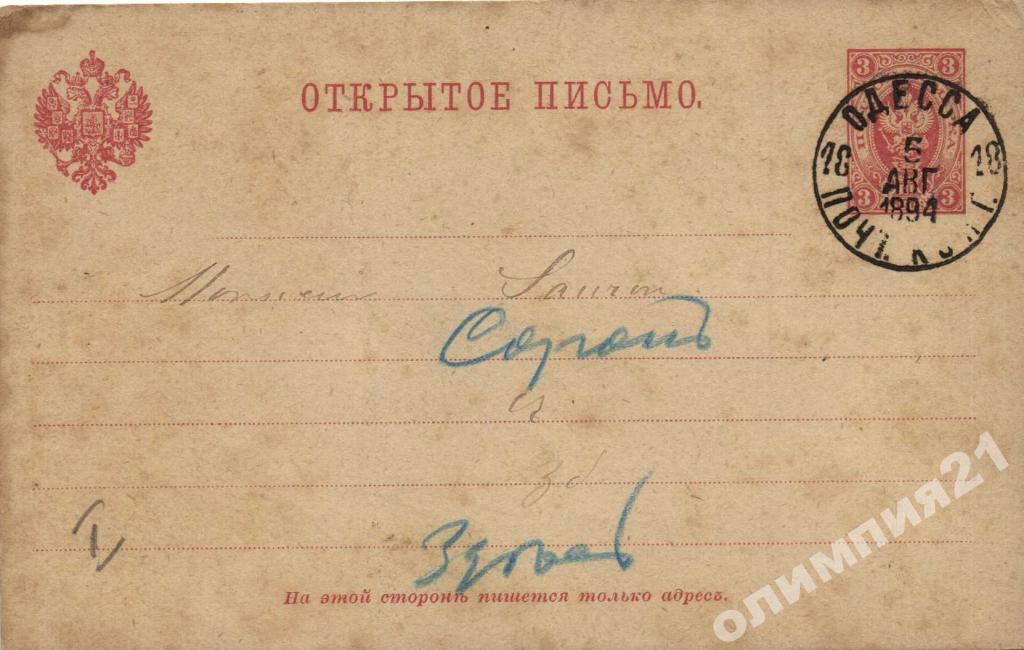 ОТКРЫТОЕ ПИСЬМО.
3 3
ОДЕССА
18 5 18
АВГ
1894
3 3
ПОЧТ. КОНТ.
Monsieur Sauron
Соронъ
Здѣсь
На этой сторонѣ пишется только адресъ.
олимпия21